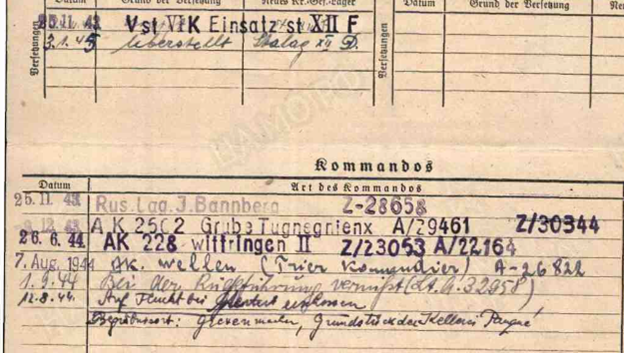 Datum Grund der Versetzung Neues Kr.-Gef.-Lager Datum Grund der Versetzung
Versetzungen
25.11.43 Vst VI K Einsatz st XII F
3.1.45 überstellt Stalag XII D.
Versetzungen
Kommandos
Datum Art des Kommandos
25.11.43 Rus. Lag. J. Bannberg Z-28658
A K 2502 Grube Tugnegnienx A/29461 Z/30344
26.6.44 AK 228 wittringen II Z/23053 A/22164
7. Aug. 1944 AK. Wellen (Trier A-26822
1.9.44 Bei der Rückführung vermißt (Lt. A. 32958)
12.8.44. Auf Flucht bei erschossen
Begräbnisort: Grevenmacher, Grundstück der Kellerei